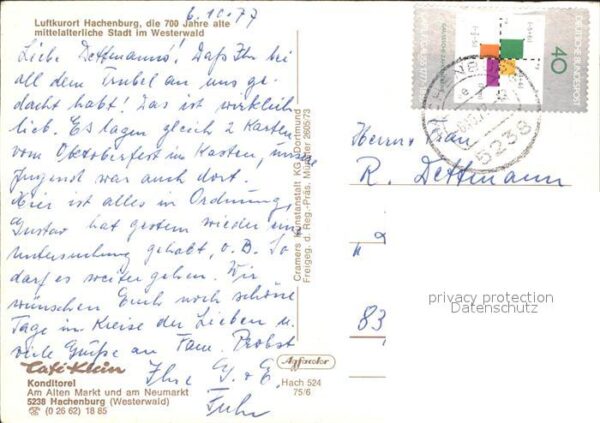 6.10.77
Luftkurort Hachenburg, die 700 Jahre alte
mittelalterliche Stadt im Westerwald
Liebe Dettmanns! Daß Ihr bei
all dem Trubel an uns ge-
dacht habt! Das ist wirklich
lieb. Es lagen gleich 2 Karten
vom Oktoberfest im Kasten, unsere
Jugend war auch dort.
Hier ist alles in Ordnung,
Gustav hat gestern wieder eine
Untersuchung gehabt, o. B. So
darf es weitergehen. Wir
wünschen Euch noch schöne
Tage im Kreise der Lieben u.
viele Grüße an Fam. Probst
Ihre G. + E.
Fuhr
Café Klein
Konditorei
Am Alten Markt und am Neumarkt
5238 Hachenburg (Westerwald)
☏ (0 26 62) 18 85
Cramers Kunstanstalt KG, Dortmund
Freigeg. d. Reg.-Präs. Münster 2605/73
Agfacolor
Hach 524
75/6
DEUTSCHE BUNDESPOST
40
5238
Herrn + Frau
R. Dettmann
83
privacy protection
Datenschutz